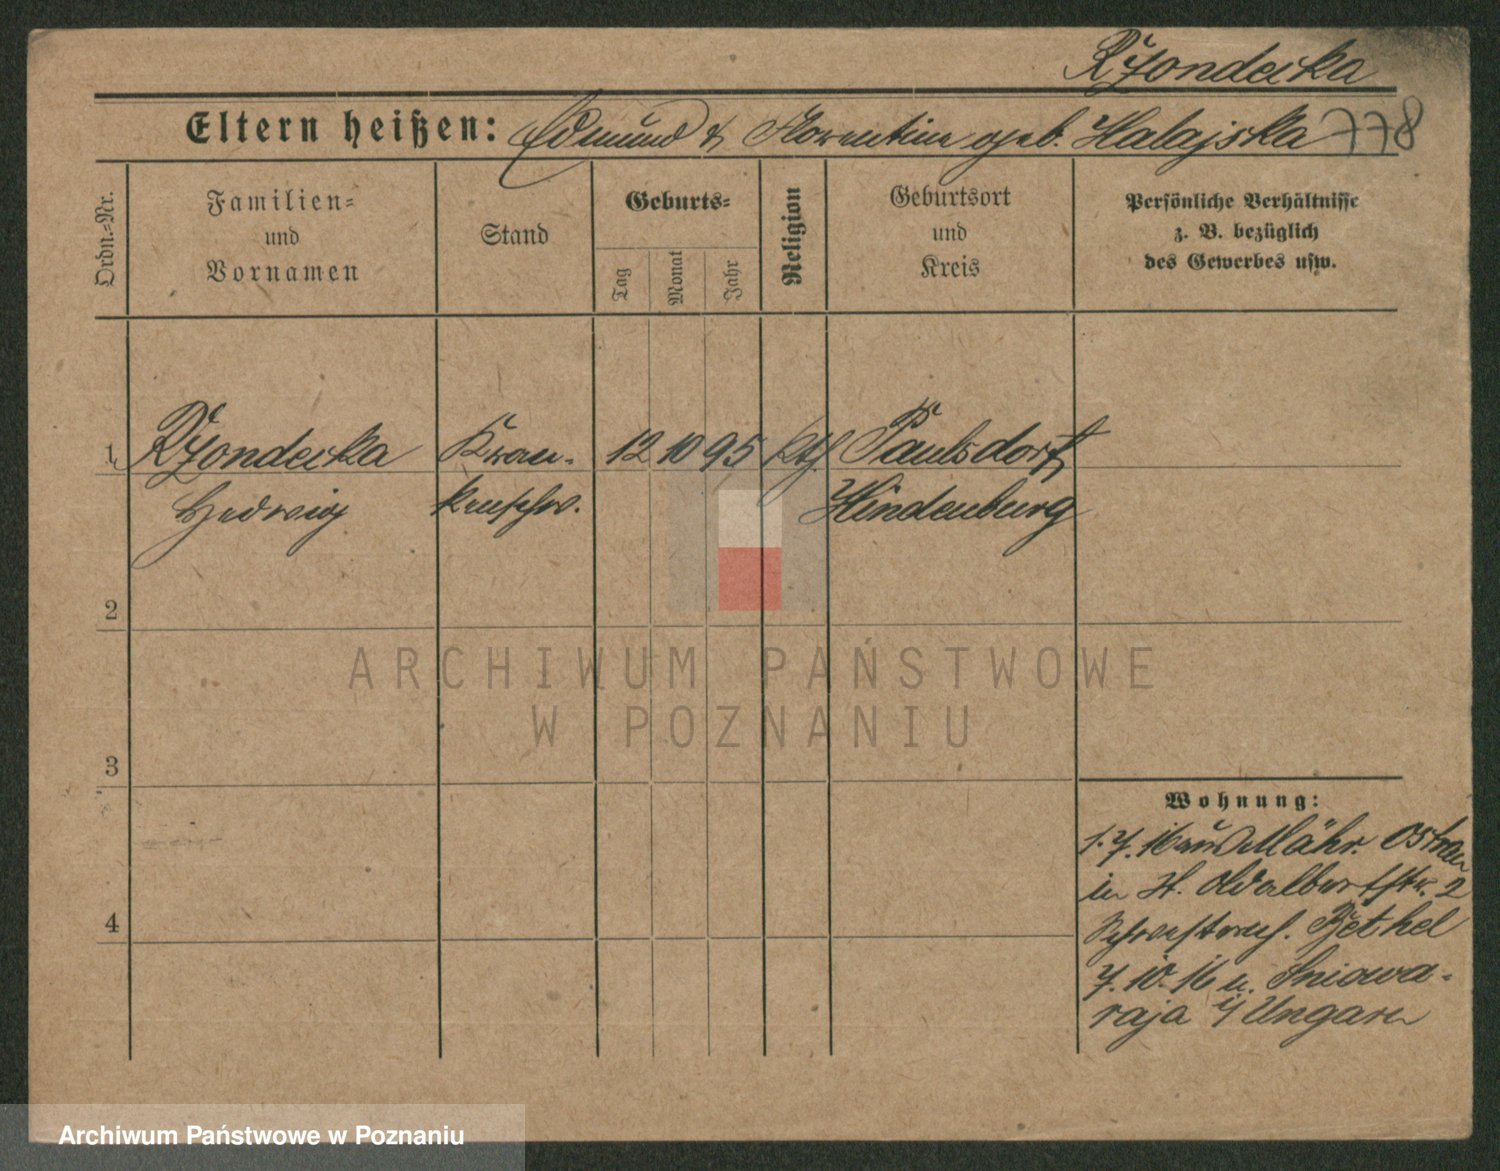 Rzondecka
Eltern heißen: Edmund & Florentine geb. Halajska 778
Ordn.-Nr.
Familien-
und
Vornamen
Stand
Geburts-
Tag
Monat
Jahr
Religion
Geburtsort
und
Kreis
Persönliche Verhältnisse
z. B. bezüglich
des Gewerbes usw.
1 Rzondecka Kran- 12 10 95 kth. Paulsdorf
Hedwig kenschw. Hindenburg
2
3
4
Wohnung:
1.7.16 Mähr. Ostrau
in H. str. 2
Bethel
7.10.16 n.
raja i/ Ungarn
ARCHIWUM PAŃSTWOWE
W POZNANIU
Archiwum Państwowe w Poznaniu